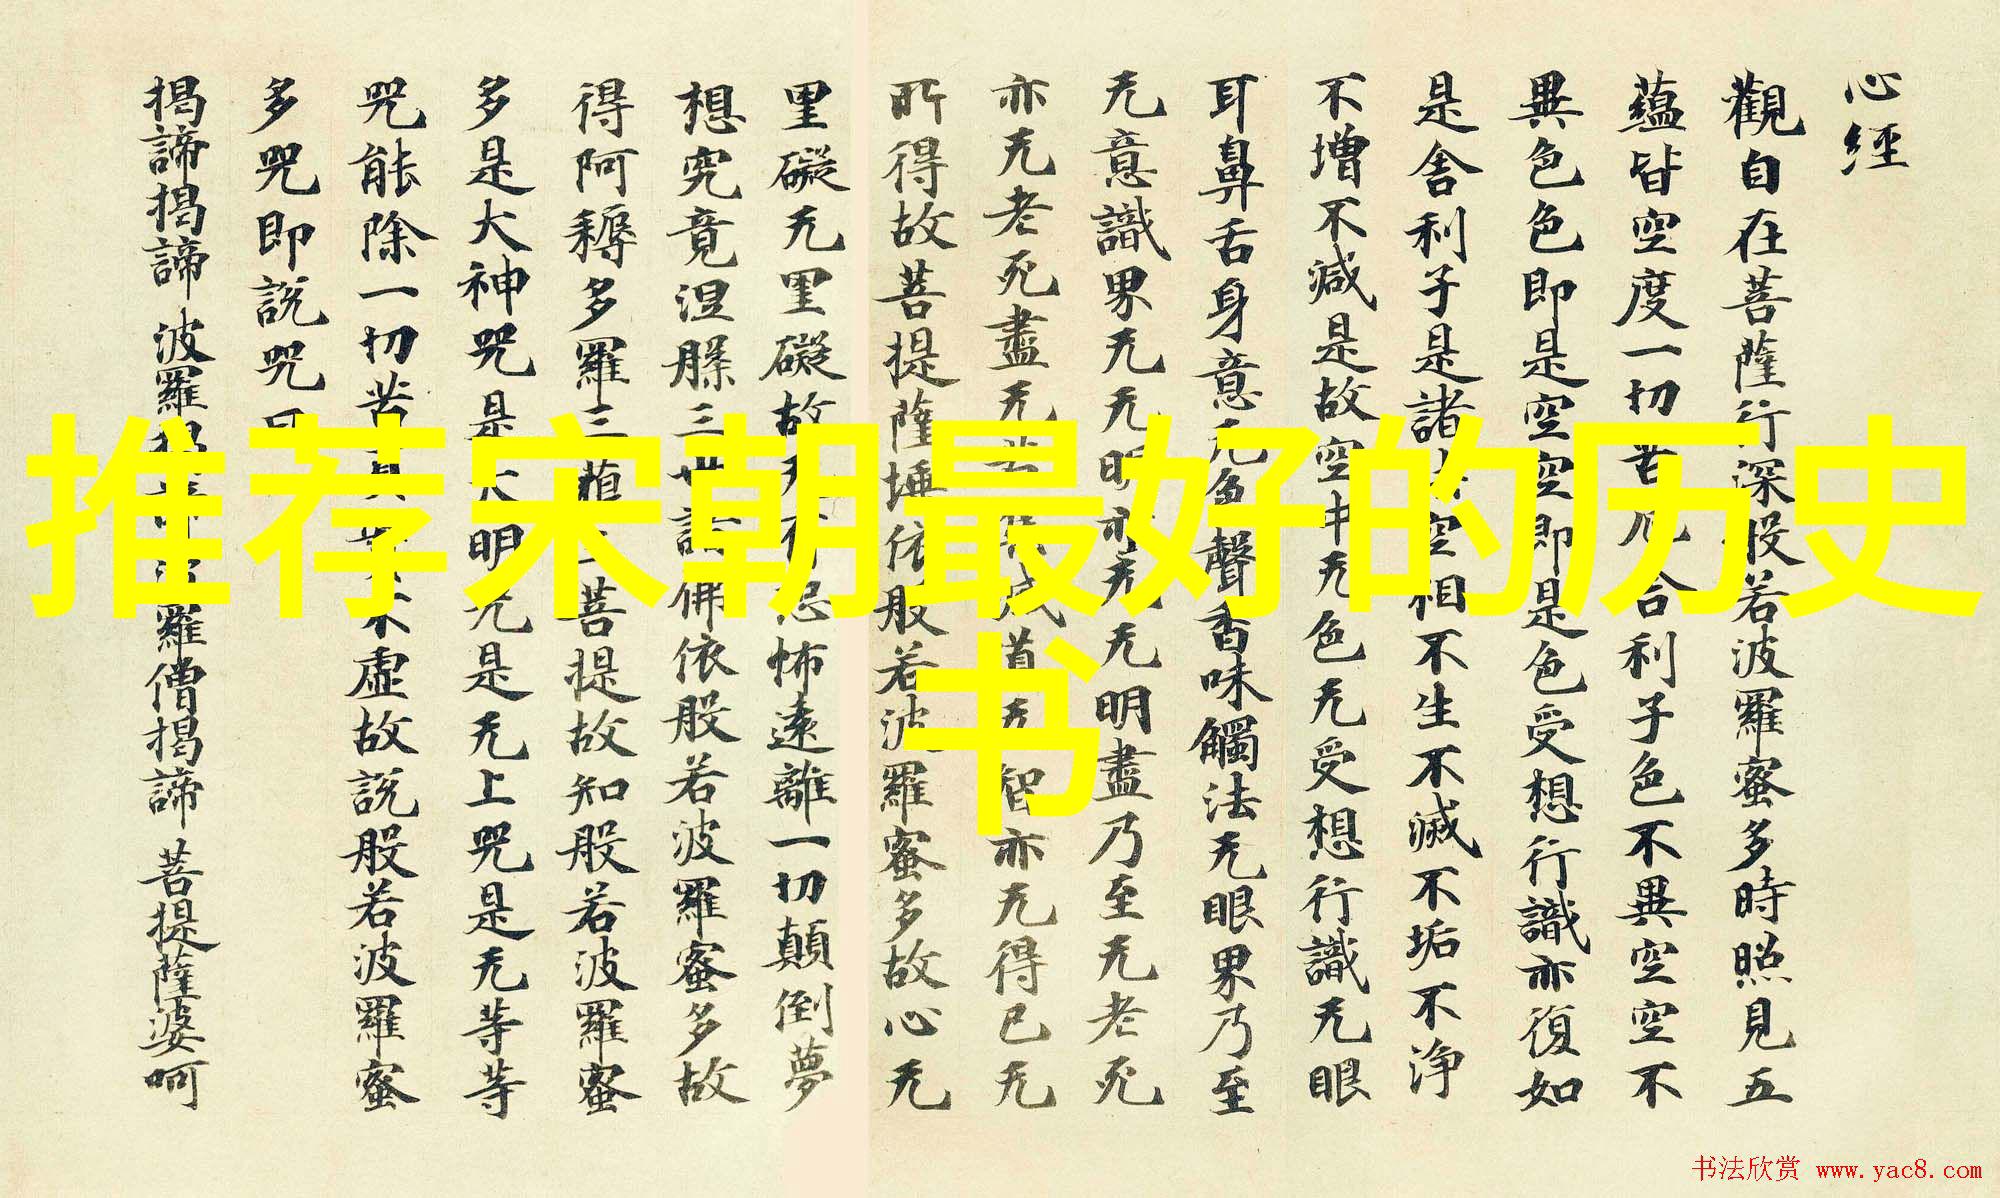 心經
觀自在菩薩行深般若波羅蜜多時照見五
蘊皆空度一切苦厄舍利子色不異空空不
異色色即是空空即是色受想行識亦復如
是舍利子是諸法空相不生不滅不垢不淨
不增不減是故空中无色无受想行識无眼
耳鼻舌身意无色聲香味觸法无眼界乃至
无意識界无无明亦无无明盡乃至无老死
亦无老死盡无苦集滅道无智亦无得已无
所得故菩提薩埵依般若波羅蜜多故心无
罣礙无罣礙故无有恐怖遠離一切顛倒夢
想究竟涅槃三世諸佛依般若波羅蜜多故
得阿耨多羅三藐三菩提故知般若波羅蜜
多是大神咒是大明咒是无上咒是无等等
咒能除一切苦真實不虛故說般若波羅蜜
多咒即說咒曰
揭諦揭諦 波羅揭諦 波羅僧揭諦 菩提薩婆呵
推荐宋朝最好的历史
书
书法欣赏 www.yac8.com